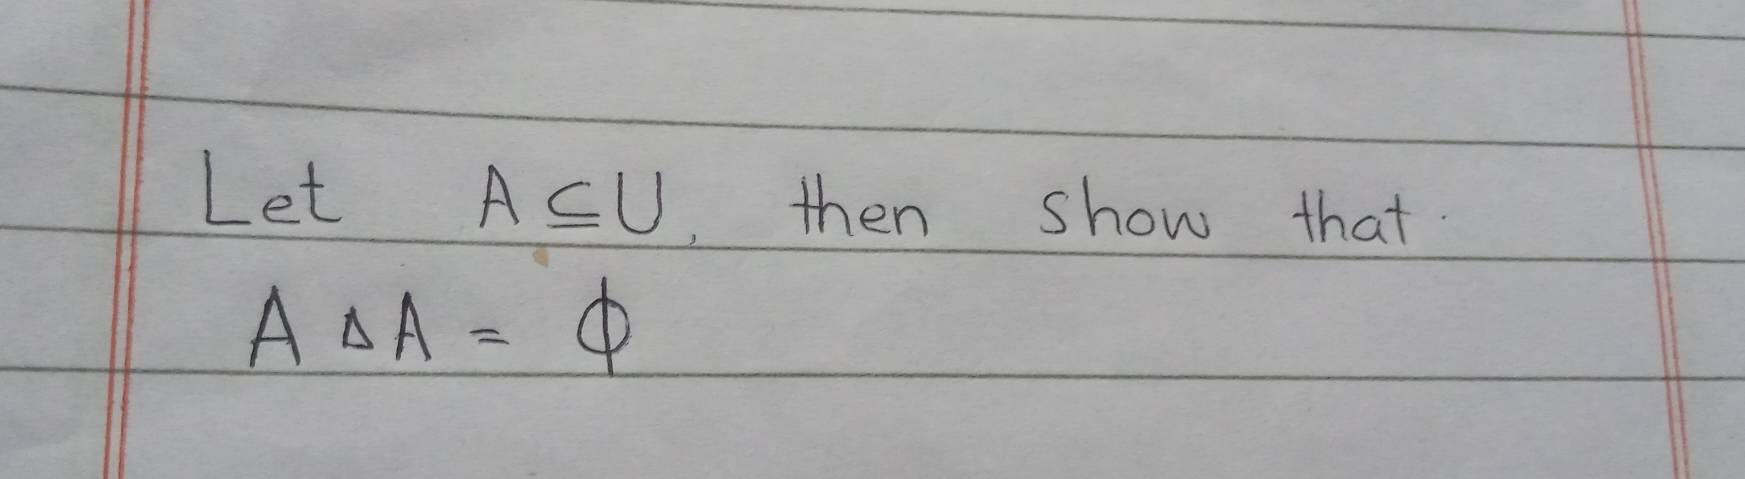 Let A ⊆ U, then show that.
A Δ A = ϕ